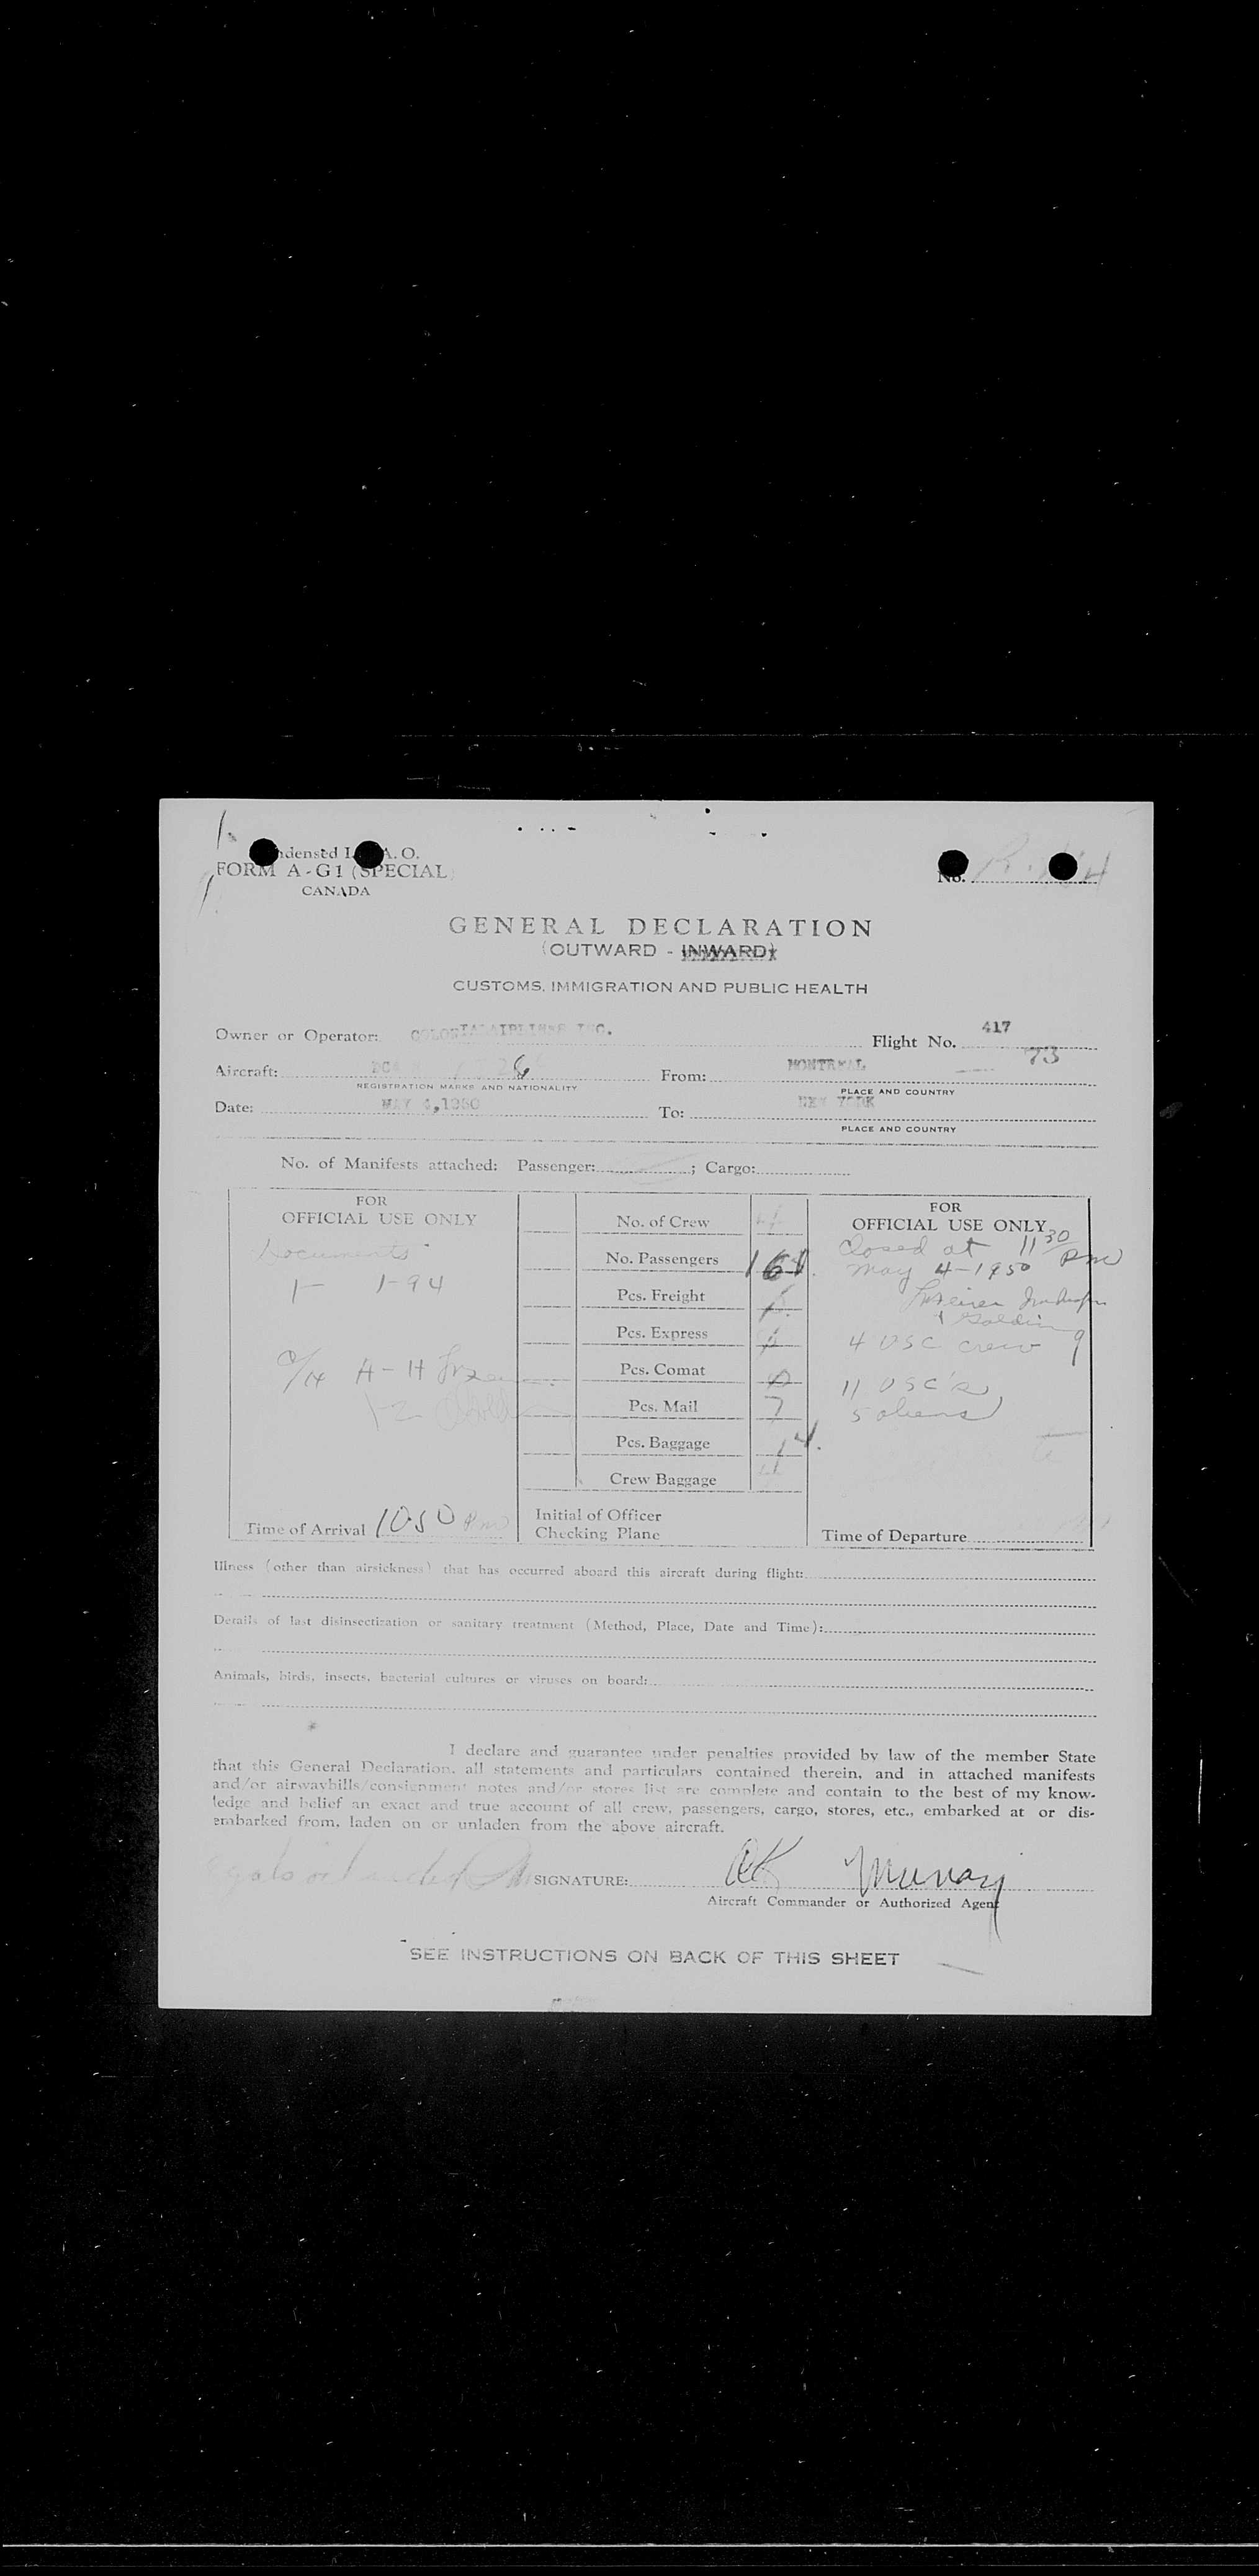 A. O.
FORM A-G1 (SPECIAL
CANADA
No.
GENERAL DECLARATION
(OUTWARD - INWARD)
CUSTOMS, IMMIGRATION AND PUBLIC HEALTH
Owner or Operator: COLONIAL AIRLINES INC. Flight No. 417
73
Aircraft: From: MONTREAL
REGISTRATION MARKS AND NATIONALITY PLACE AND COUNTRY
Date: MAY 4, 1950 To: NEW YORK
PLACE AND COUNTRY
No. of Manifests attached: Passenger: ; Cargo:
FOR
OFFICIAL USE ONLY
Documents
1- 1-94
A-H
Time of Arrival 1050 Pm
No. of Crew 4
No. Passengers 16
Pcs. Freight
Pcs. Express
Pcs. Comat
Pcs. Mail 7
Pcs. Baggage 14.
Crew Baggage
Initial of Officer
Checking Plane
FOR
OFFICIAL USE ONLY
Closed at 11 30 Pm
May 4-1950
& Golding
4 USC crew
11 USC's
5 aliens
Time of Departure
Illness (other than airsickness) that has occurred aboard this aircraft during flight:
Details of last disinsectization or sanitary treatment (Method, Place, Date and Time):
Animals, birds, insects, bacterial cultures or viruses on board:
I declare and guarantee under penalties provided by law of the member State
that this General Declaration, all statements and particulars contained therein, and in attached manifests
and/or airwaybills/consignment notes and/or stores list are complete and contain to the best of my know-
ledge and belief an exact and true account of all crew, passengers, cargo, stores, etc., embarked at or dis-
embarked from, laden on or unladen from the above aircraft.
SIGNATURE: Murray
Aircraft Commander or Authorized Agent
SEE INSTRUCTIONS ON BACK OF THIS SHEET